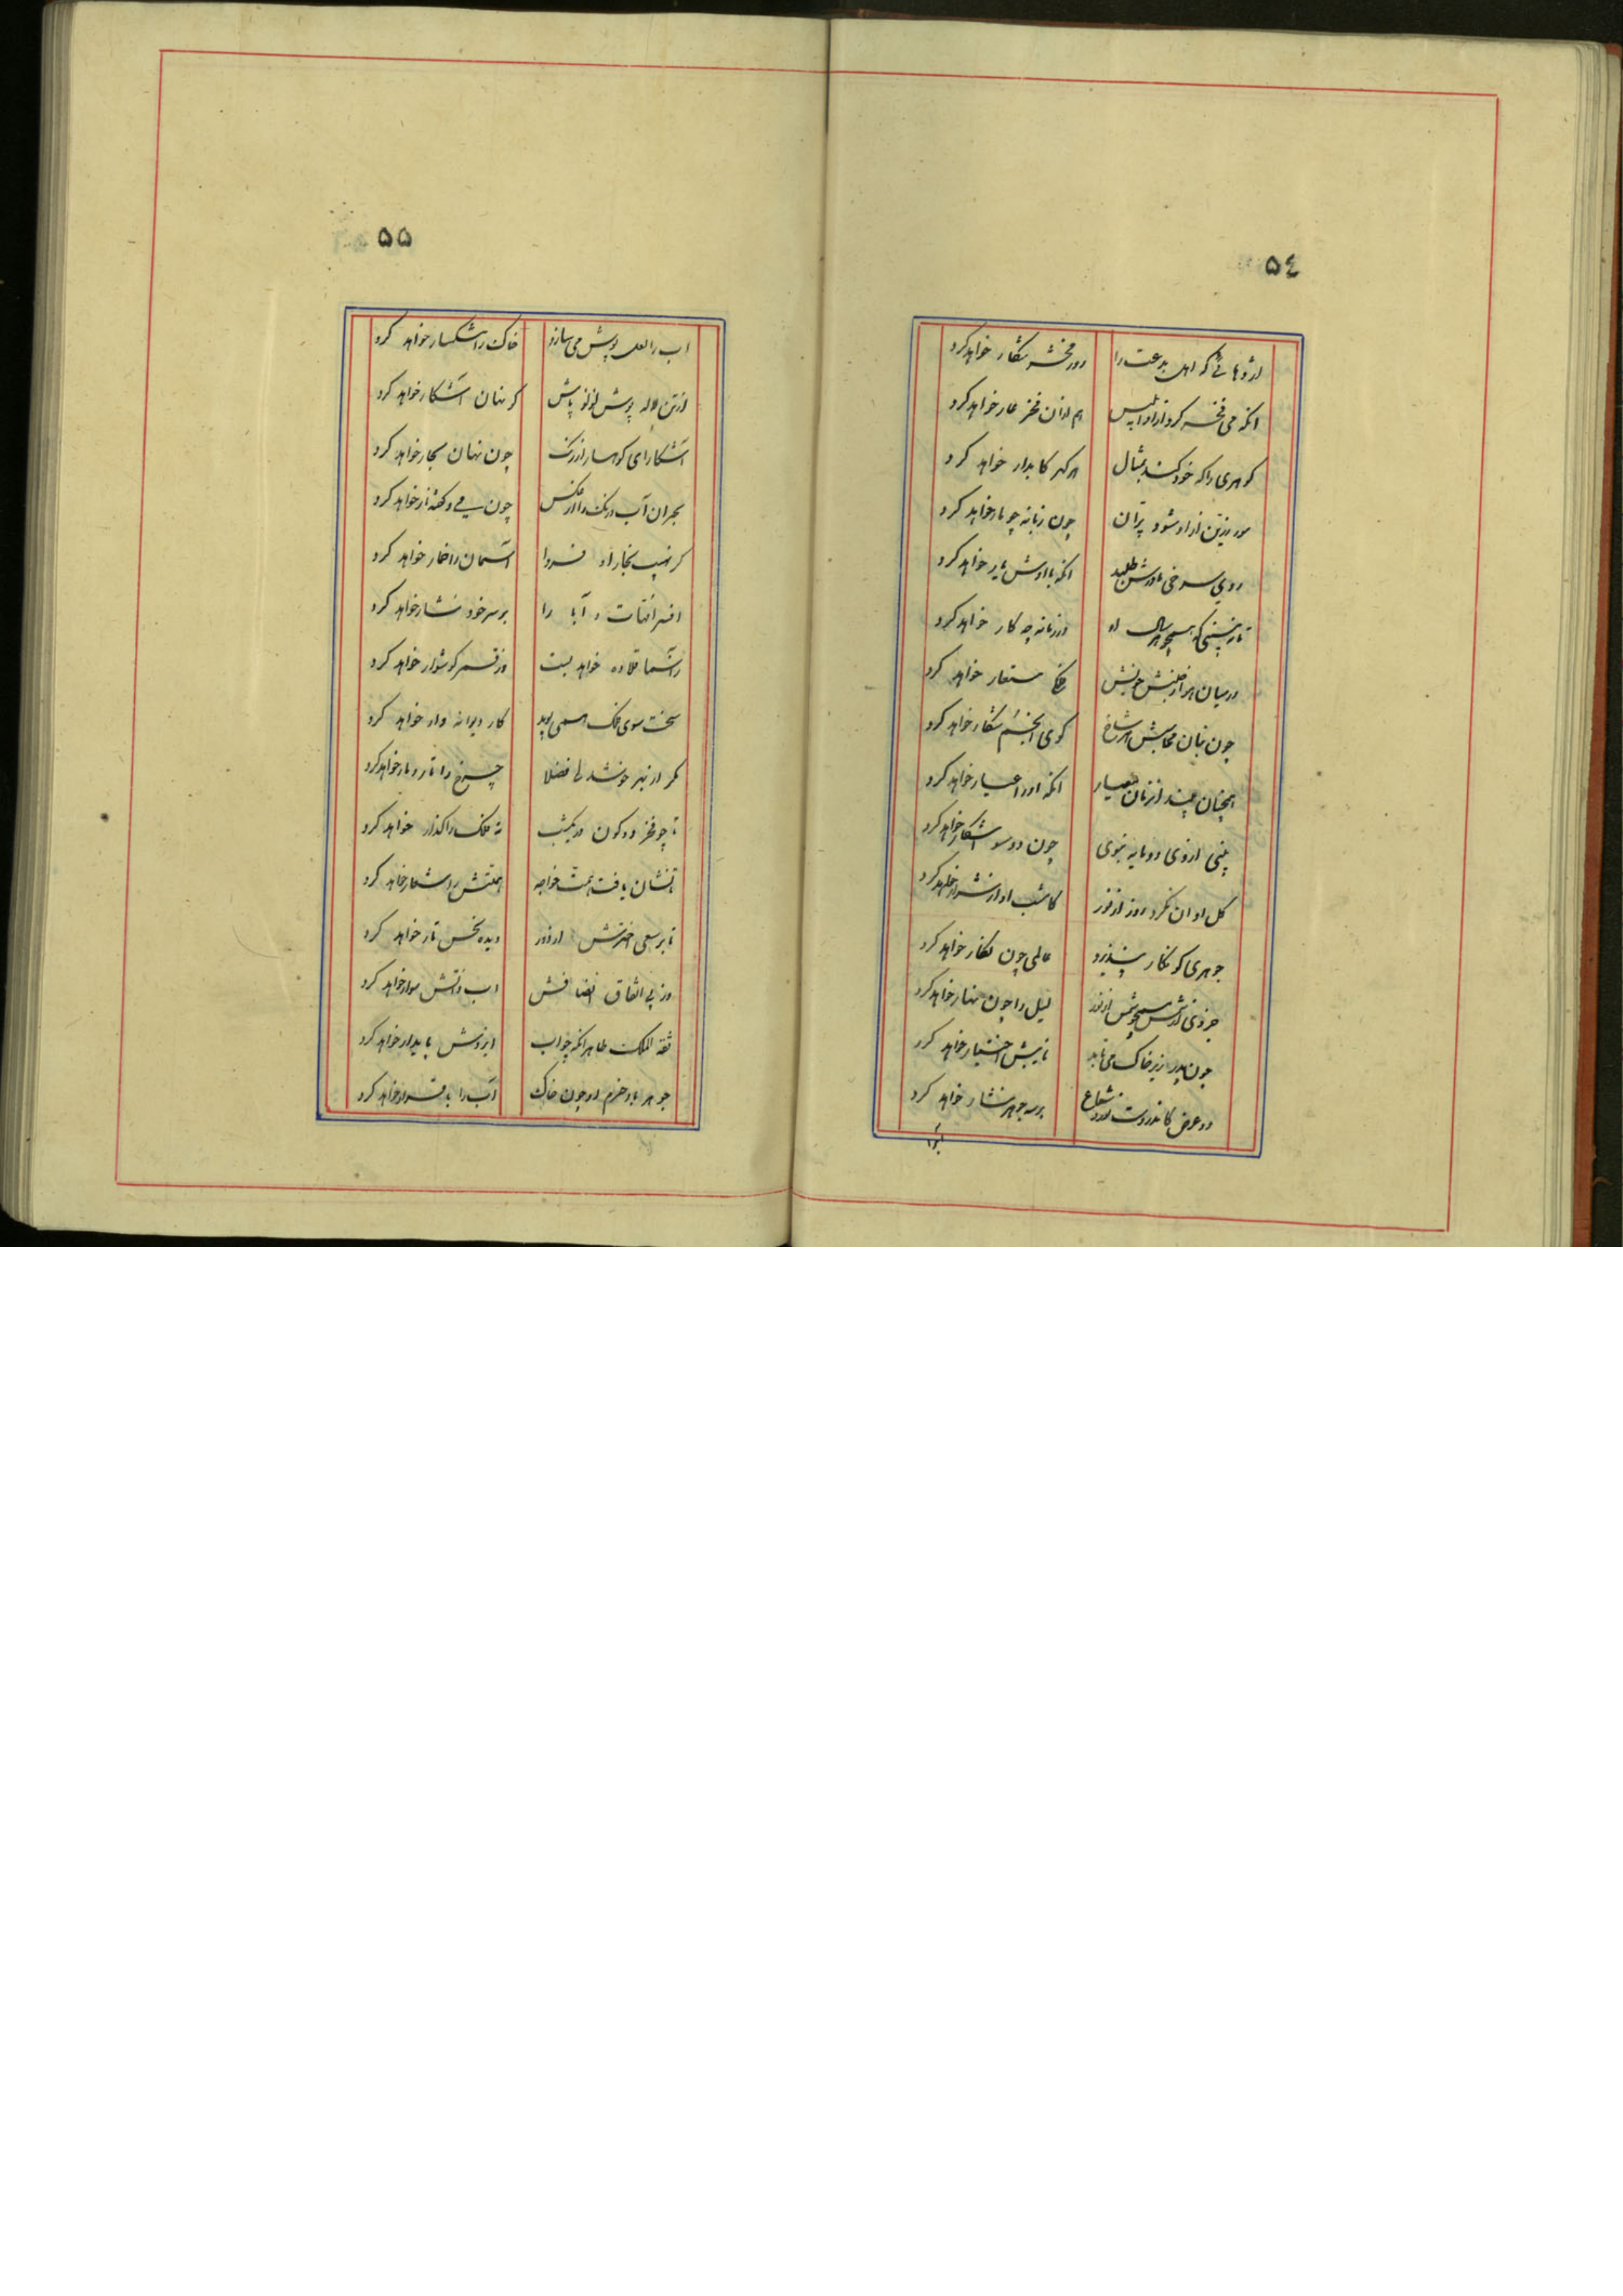 ۵٤
اژدهائی که اهل بدعت را روز محشر شکار خواهد کرد
انکه می فخر کرد ازو ابلیس هم از ان فخر عار خواهد کرد
کوهری را که خود کند بمثال هر کهر کابدار خواهد کرد
مور زین از او شود پران چون زبانه چو مار خواهد کرد
روی سرخی
تا نه بینی که همچو هر سال او در زمانه چه کار خواهد کرد
در میان هر از جنبش خویش مستعار خواهد کرد
چون بتان هر شاخ کوی انجم شکار خواهد کرد
همچنان چند از زبان معیار انکه او را عیار خواهد کرد
بینی از وی دو مایه نبوی چون دو سو اشکار خواهد کرد
کل او ان نکرد روز از نور کاشب او از شرار خواهد کرد
جوهری کو نکار نپذیرد عالمی چون نکار خواهد کرد
همچو شمس از نور لیل را چون نهار خواهد کرد
چون پدر زیر خاک می تابد تابش اختیار خواهد کرد
دو عرض کاندروست نور و شعاع بر سه جوهر نثار خواهد کرد
۵۵
اب را لعل پوش می سازد خاک را مشکسار خواهد کرد
از تن لاله پوش لولو پاش کر نهان آشکار خواهد کرد
آشکارای کوهسار از رنک چون نهان بحار خواهد کرد
بحر ان آب رنک را از عکس چون سر کفته نار خواهد کرد
کز نهیب بخار او فردا آسمان را خمار خواهد کرد
افسر امهات و آبا را بر سر خود نثار خواهد کرد
قلاده خواهد بست وز قمر کوشوار خواهد کرد
سخت سوی فلک همی پوید کار دیوانه وار خواهد کرد
مکر از بهر فضلا چرخ را تار و مار خواهد کرد
تا چو فخر دو کون در یکشب نه فلک را کذار خواهد کرد
تا نشان یافت همت خواجه همتش را شعار خواهد کرد
تا برسعی اخترش از نور دیده نحس تار خواهد کرد
وز پی اتفاق انصافش اب و اتش سوار خواهد کرد
ثقة الملک طاهر انکه چو اب ایزدش پایدار خواهد کرد
جوهر باد حزم او چون خاک آب را با قرار خواهد کرد